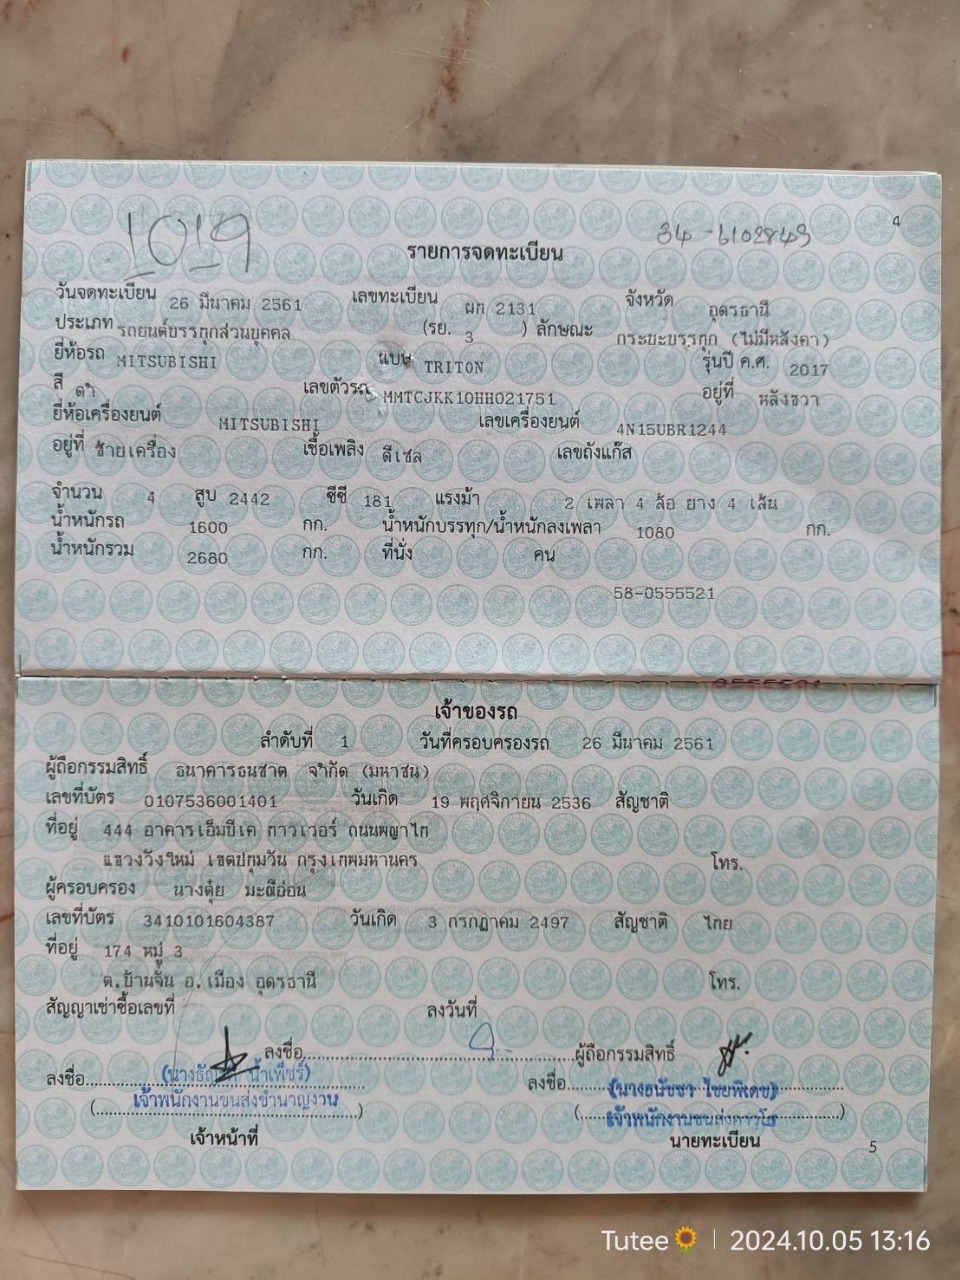 4
1019
34-6102843
รายการจดทะเบียน
วันจดทะเบียน 26 มีนาคม 2561 เลขทะเบียน ผก 2131 จังหวัด อุดรธานี
ประเภท รถยนต์บรรทุกส่วนบุคคล (รย. 3 ) ลักษณะ กระบะบรรทุก (ไม่มีหลังคา)
ยี่ห้อรถ MITSUBISHI แบบ TRITON รุ่นปี ค.ศ. 2017
สี ดำ เลขตัวรถ MMTCJKK10HH021751 อยู่ที่ หลังขวา
ยี่ห้อเครื่องยนต์ MITSUBISHI เลขเครื่องยนต์ 4N15UBR1244
อยู่ที่ ซ้ายเครื่อง เชื้อเพลิง ดีเซล เลขถังแก๊ส
จำนวน 4 สูบ 2442 ซีซี 181 แรงม้า 2 เพลา 4 ล้อ ยาง 4 เส้น
น้ำหนักรถ 1600 กก. น้ำหนักบรรทุก/น้ำหนักลงเพลา 1080 กก.
น้ำหนักรวม 2680 กก. ที่นั่ง คน
58-0555521
เจ้าของรถ
ลำดับที่ 1 วันที่ครอบครองรถ 26 มีนาคม 2561
ผู้ถือกรรมสิทธิ์ ธนาคารธนชาต จำกัด (มหาชน)
เลขที่บัตร 0107536001401 วันเกิด 19 พฤศจิกายน 2536 สัญชาติ
ที่อยู่ 444 อาคารเอ็มบีเค ทาวเวอร์ ถนนพญาไท
แขวงวังใหม่ เขตปทุมวัน กรุงเทพมหานคร โทร.
ผู้ครอบครอง นางตุ๋ย มะตีอ่อน
เลขที่บัตร 3410101604387 วันเกิด 3 กรกฎาคม 2497 สัญชาติ ไทย
ที่อยู่ 174 หมู่ 3
ต.บ้านจั่น อ.เมือง อุดรธานี โทร.
สัญญาเช่าซื้อเลขที่ ลงวันที่
ลงชื่อ ผู้ถือกรรมสิทธิ์
ลงชื่อ น้ำเพ็ชร์) ลงชื่อ (นางธนัชชา ไชยพิเดช)
(เจ้าพนักงานขนส่งชำนาญงาน) (เจ้าพนักงานขนส่งอาวุโส)
เจ้าหน้าที่ นายทะเบียน
5
Tutee🌻 | 2024.10.05 13:16